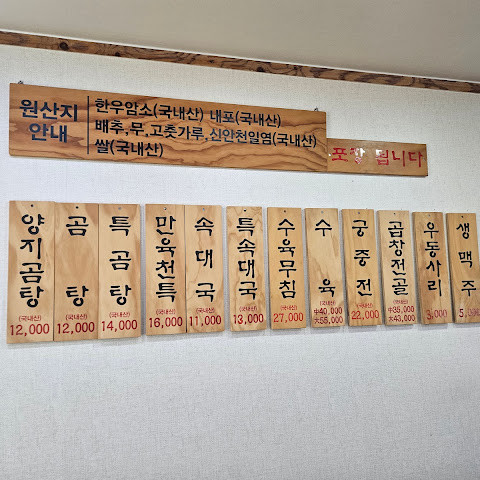 원산지
안내
한우암소(국내산) 내포(국내산)
배추,무,고춧가루,신안천일염(국내산)
쌀(국내산)
포장 됩니다
양지곰탕
(국내산)
12,000
곰탕
(국내산)
12,000
특곰탕
(국내산)
14,000
만육천특
(국내산)
16,000
속대국
(국내산)
11,000
특속대국
(국내산)
13,000
수육무침
(국내산)
27,000
수육
(국내산)
中40,000
大55,000
궁중전
(국내산)
22,000
곱창전골
(국내산)
中35,000
大43,000
우동사리
3,000
생맥주